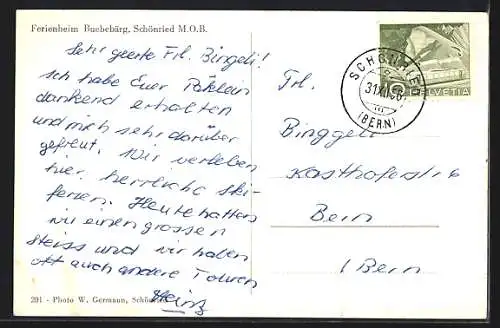 Ferienheim Buebebärg, Schönried M.O.B.
Sehr geerte Frl. Bingeli!
Ich habe Euer Päklein
dankend erhalten
und mich sehr darüber
gefreut. Wir verleben
hier herrliche Ski-
ferien. Heute hatten
wir einen grossen
und wir haben
oft auch andere Touren
Heinz
201 - Photo W. Germann, Schönried
SCHÖNRIED
31.XII.
(BERN)
HELVETIA
Frl.
Binggeli
Kasthoferstr 6
Bern
(Bern